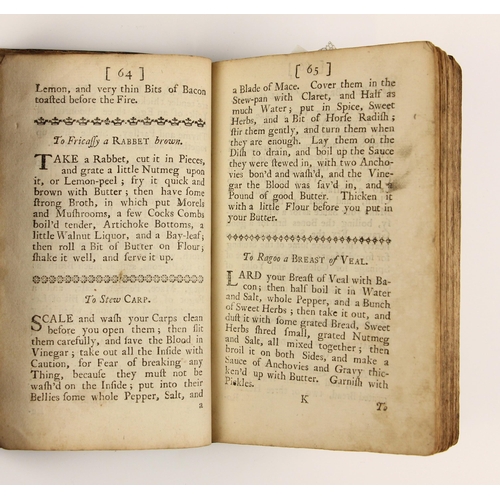 [ 64 ]
Lemon, and very thin Bits of Bacon
toaſted before the Fire.
To Fricaſſy a RABBET brown.
TAKE a Rabbet, cut it in Pieces,
and grate a little Nutmeg upon
it, or Lemon-peel; fry it quick and
brown with Butter; then have ſome
ſtrong Broth, in which put Morels
and Muſhrooms, a few Cocks Combs
boil'd tender, Artichoke Bottoms, a
little Walnut Liquor, and a Bay-leaf;
then roll a Bit of Butter on Flour,
ſhake it well, and ſerve it up.
To Stew CARP.
SCALE and waſh your Carps clean
before you open them; then ſlit
them carefully, and ſave the Blood in
Vinegar; take out all the Inſide with
Caution, for Fear of breaking any
Thing, becauſe they muſt not be
waſh'd on the Inſide; put into their
Bellies ſome whole Pepper, Salt, and
a
[ 65 ]
a Blade of Mace. Cover them in the
Stew-pan with Claret, and Half as
much Water; put in Spice, Sweet
Herbs, and a Bit of Horſe Radiſh;
ſtir them gently, and turn them when
they are enough. Lay them on the
Diſh to drain, and boil up the Sauce
they were ſtewed in, with two Ancho-
vies bon'd and waſh'd, and the Vine-
gar the Blood was ſav'd in, and a
Pound of good Butter. Thicken it
with a little Flour before you put in
your Butter.
To Ragoo a BREAST of VEAL.
LARD your Breaſt of Veal with Ba-
con; then half boil it in Water
and Salt, whole Pepper, and a Bunch
of Sweet Herbs; then take it out, and
duſt it with ſome grated Bread, Sweet
Herbs ſhred ſmall, grated Nutmeg
and Salt, all mixed together; then
broil it on both Sides, and make a
Sauce of Anchovies and Gravy thic-
ken'd up with Butter. Garniſh with
Pickles.
K
To